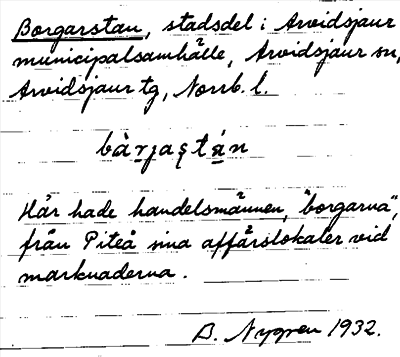 Borgarstan, stadsdel i Arvidsjaur
municipalsamhälle, Arvidsjaur sn,
Arvidsjaur tg, Norrb. l.
bàrjaʂtán
Här hade handelsmännen, "borgarna",
från Piteå sina affärslokaler vid
marknaderna.
B. Nygren 1932.